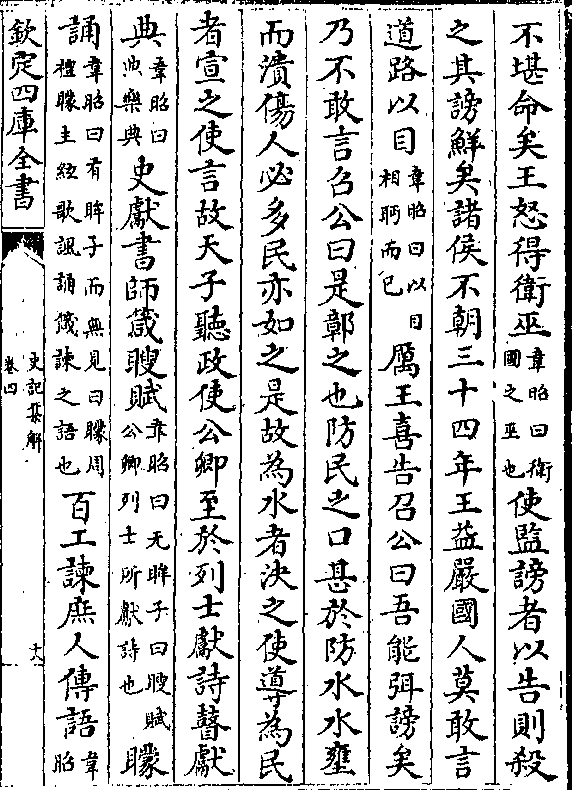 不堪命矣王怒得衛巫韋昭曰衛國之巫也使監謗者以告則殺
之其謗鮮矣諸侯不朝三十四年王益嚴國人莫敢言
道路以目韋昭曰以目相眄而已厲王喜告召公曰吾能弭謗矣
乃不敢言召公曰是鄣之也防民之口甚於防水水壅
而潰傷人必多民亦如之是故為水者決之使導為民
者宣之使言故天子聽政使公卿至於列士獻詩瞽獻
典韋昭曰典樂典史獻書師箴瞍賦韋昭曰无眸子曰瞍賦公卿列士所獻詩也矇
誦韋昭曰有眸子而無見曰矇周禮矇主絃歌諷誦箴諫之語也百工諫庶人傳語韋昭
欽定四庫全書
史記集解
卷四
十八